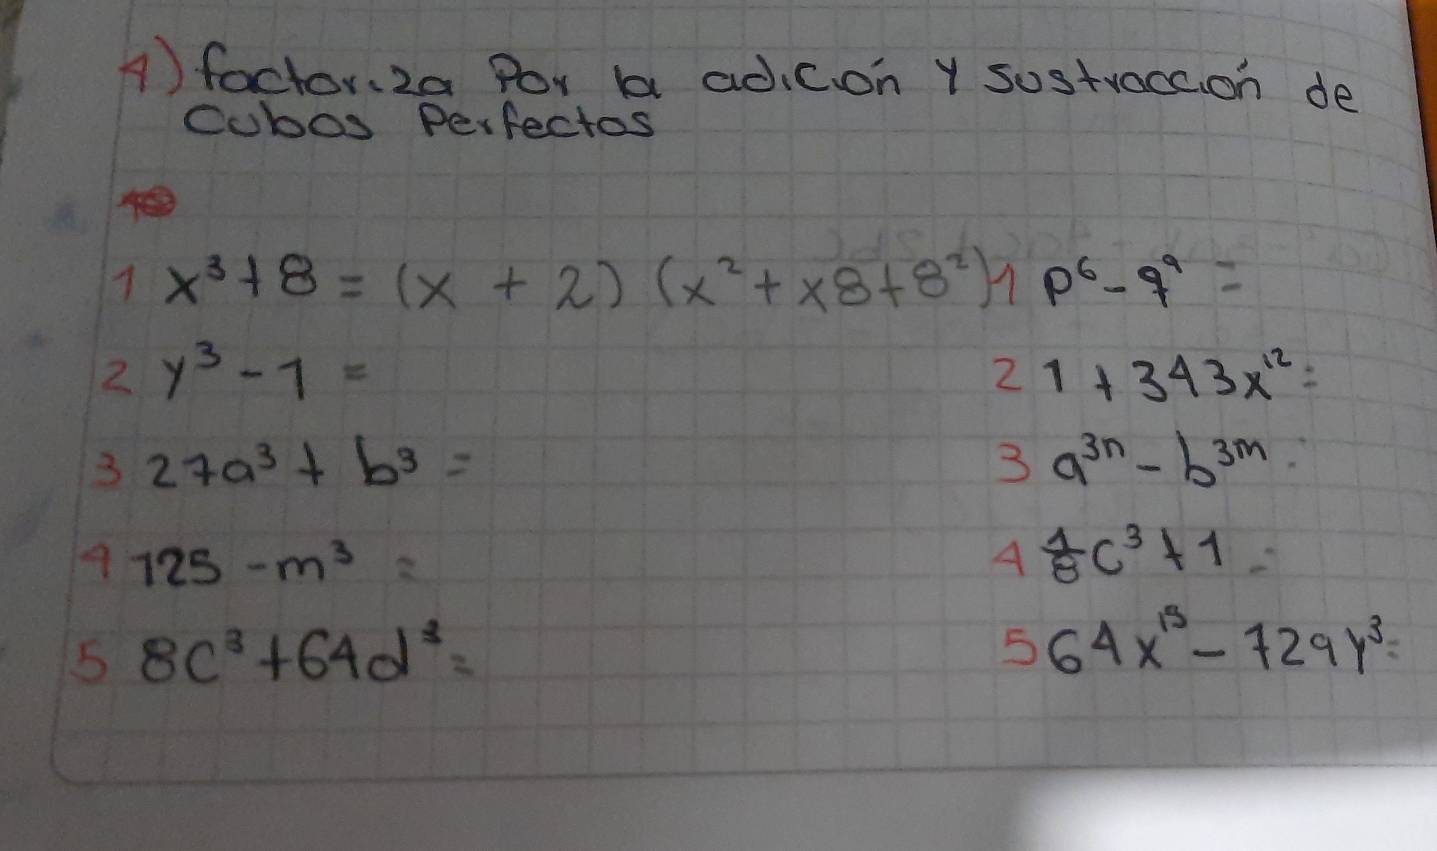 4) factoriza Por la adición y sustracción de
Cubos Perfectos
1 x³+8 = (x + 2) (x² + x8+8²) 1 p⁶ - q⁹ =
2 y³ - 1 = 2 1 + 343x¹² =
3 27a³ + b³ = 3 a³ⁿ - b³ᵐ =
4 125 - m³ = 4 1/8 c³ + 1 =
5 8c³ + 64d³ = 5 64x¹⁵ - 729y³ =